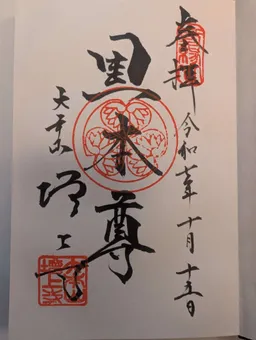 奉拝 令和七年十月十五日
黒本尊
大本山 増上寺